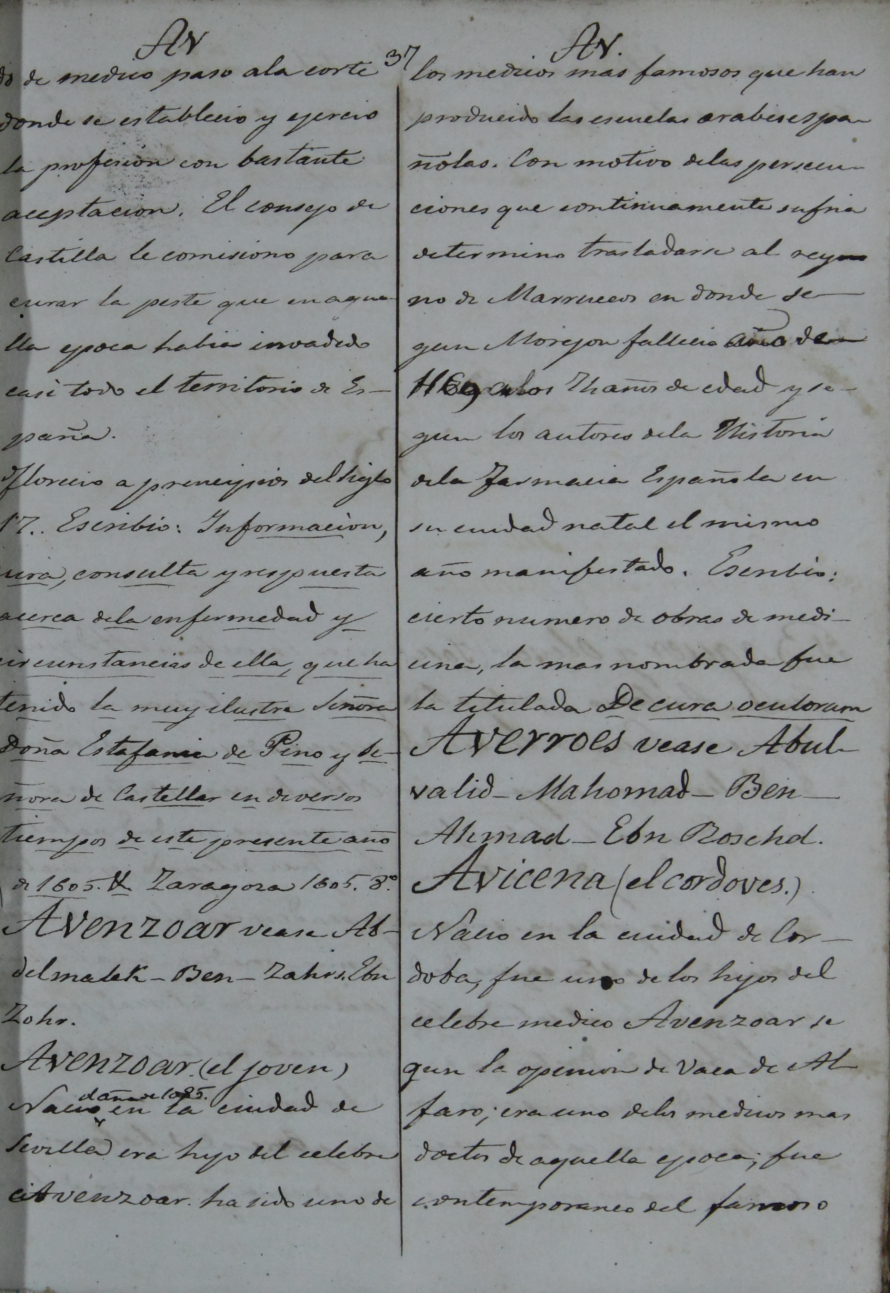 Av
37
Av.
do de medico paso ala corte
donde se establecio y ejercio
la profesion con bastante
aceptacion. El consejo de
Castilla le comisiono para
curar la peste que en aque
lla epoca habia invadido
casi todo el territorio de Es-
paña.
Florecio a principios del Siglo
17. Escribio: Informacion,
cura, consulta y respuesta
acerca dela enfermedad y
circunstancias de ella, que ha
tenido la muy ilustre Señora
Doña Estafania de Pino y Se-
ñora de Castellar en diversos
tiempos de este presente año
de 1605. Zaragoza 1605. 8.º
Avenzoar vease Ab-
delmalek - Ben - Zahrs. Ebn
Zohr.
Avenzoar (el joven)
el año de 1095.
Nacio en la ciudad de
Sevilla y era hijo del celebre
Avenzoar. ha sido uno de
los medicos mas famosos que han
producido las escuelas arabes espa-
ñolas. Con motivo delas persecu-
ciones que continuamente sufria
determino trasladarse al rey
no de Marruecos en donde se-
gun Morejon fallecio año de
1169 a los 74 años de edad y se-
gun los autores dela Historia
dela Farmacia Española en
su ciudad natal el mismo
año manifestado. Escribio:
cierto numero de obras de medi-
cina, la mas nombrada fue
la titulada De cura oculoram
Averroes vease Abul-
valid - Mahomad - Ben -
Ahmad - Ebn Roschd.
Avicena (el cordoves.)
Nacio en la ciudad de Cor-
doba, fue uno de los hijos del
celebre medico Avenzoar se
gun la opinion de Vaca de Al
faro; era uno delos medicos mas
doctos de aquella epoca; fue
contemporaneo del famoso